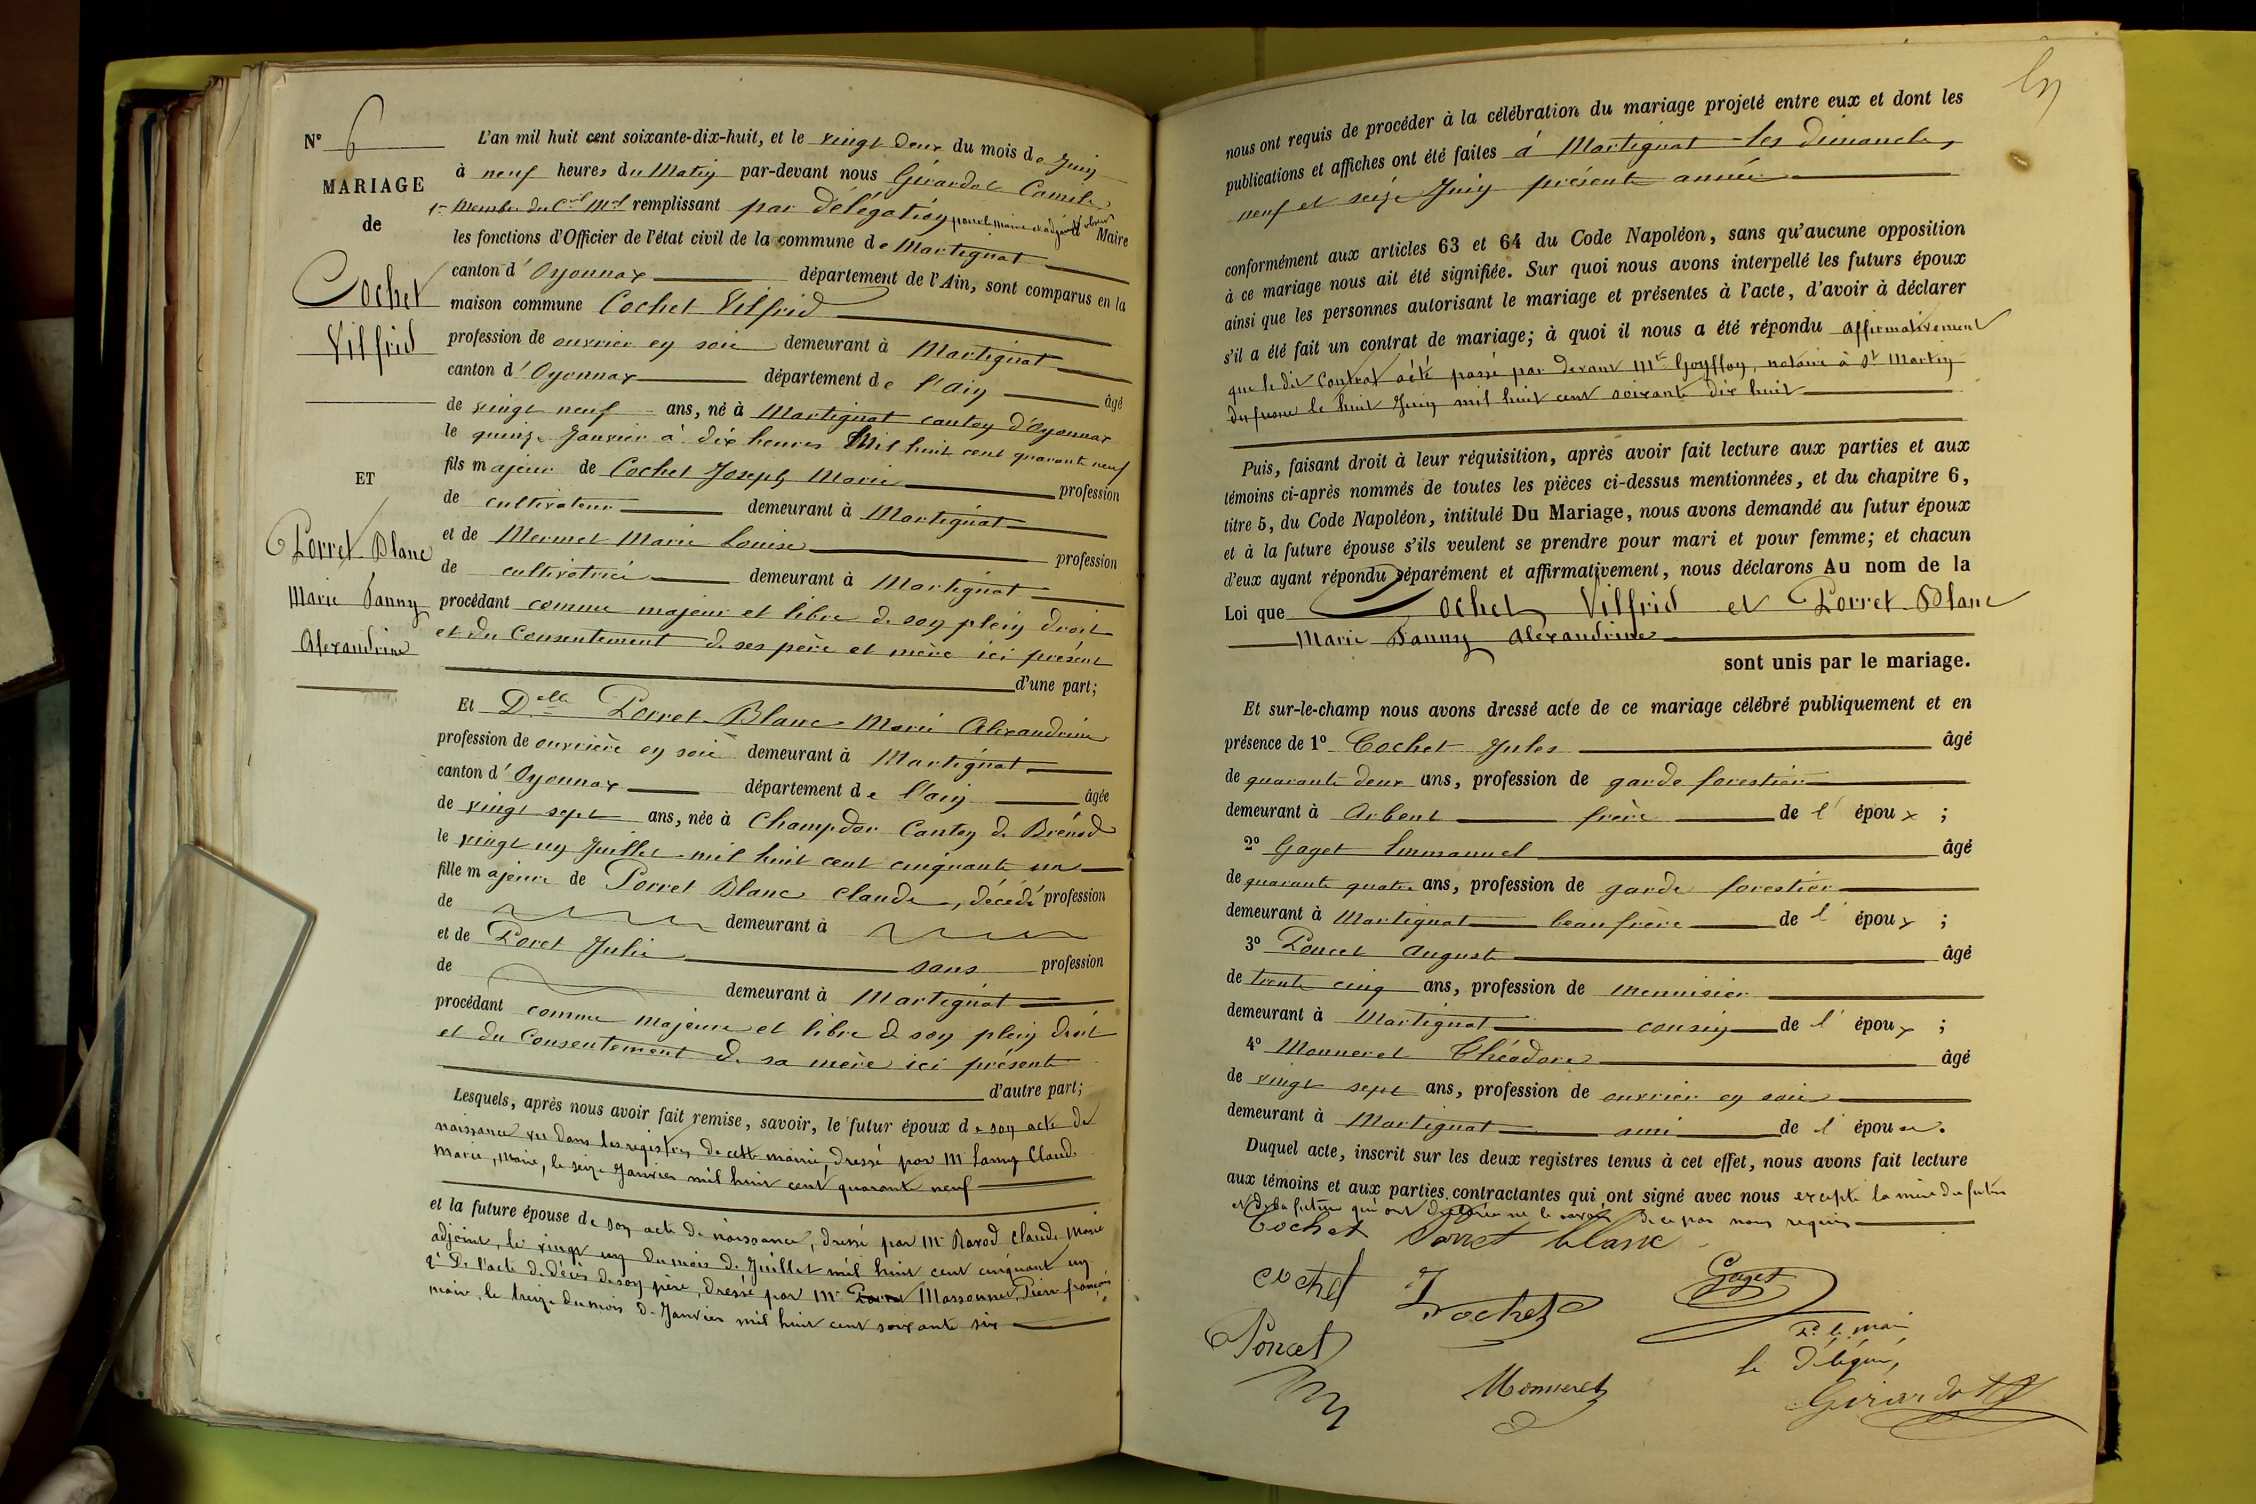 N° 6
MARIAGE
de
Cochet
Vilfrid
ET
Porret Blanc
Marie Fanny
Alexandrine
L'an mil huit cent soixante-dix-huit, et le vingt deux du mois de Juin
à neuf heures du Matin par-devant nous Girardot Camile
1er Membre du Cil Mal remplissant par délégation pour le maire et adjoint absent Maire
les fonctions d'Officier de l'état civil de la commune de Martignat
canton d'Oyonnax département de l'Ain, sont comparus en la
maison commune Cochet Vilfrid
profession de ouvrier en soie demeurant à Martignat
canton d'Oyonnax département de l'ain âgé
de vingt neuf ans, né à Martignat canton d'Oyonnax
le quinze Janvier à dix heures Mil huit cent quarante neuf
fils majeur de Cochet Joseph Marie profession
de cultivateur demeurant à Martignat
et de Mermet Marie Louise profession
de cultivatrice demeurant à Martignat
procédant comme majeur et libre de son plein droit
et du Consentement de ses père et mère ici présent
d'une part;
Et Delle Porret Blanc Marie Alexandrine
profession de ouvrière en soie demeurant à Martignat
canton d'Oyonnax département de l'ain âgée
de vingt sept ans, née à Champdor Canton de Brénod
le vingt un Juillet mil huit cent cinquante un
fille majeure de Porret Blanc Claude, décédé profession
de demeurant à
et de Poret Julie sans profession
de demeurant à Martignat
procédant comme majeure et libre de son plein droit
et du Consentement de sa mère ici présente
d'autre part;
Lesquels, après nous avoir fait remise, savoir, le futur époux de son acte de
naissance vu dans les registres de cette mairie, dressé par M Lamy Claude
Marie, Maire, le seize Janvier mil huit cent quarante neuf
et la future épouse de son acte de naissance, dressé par Mr Ravod Claude Marie
adjoint, le vingt un du mois de Juillet mil huit cent cinquant un
2° De l'acte de décès de son père, dressé par Mr Massonnet, Pierre françois
maire, le treize du mois de Janvier mil huit cent soixante six
nous ont requis de procéder à la célébration du mariage projeté entre eux et dont les
publications et affiches ont été faites à Martignat les dimanche,
neuf et seize Juin présente année
conformément aux articles 63 et 64 du Code Napoléon, sans qu'aucune opposition
à ce mariage nous ait été signifiée. Sur quoi nous avons interpellé les futurs époux
ainsi que les personnes autorisant le mariage et présentes à l'acte, d'avoir à déclarer
s'il a été fait un contrat de mariage; à quoi il nous a été répondu affirmativement
que le dit Contrat a été passé par devant Mre Goyffon, notaire à St Martin
du fresne le huit Juin mil huit cent soixante dix huit
Puis, faisant droit à leur réquisition, après avoir fait lecture aux parties et aux
témoins ci-après nommés de toutes les pièces ci-dessus mentionnées, et du chapitre 6,
titre 5, du Code Napoléon, intitulé Du Mariage, nous avons demandé au futur époux
et à la future épouse s'ils veulent se prendre pour mari et pour femme; et chacun
d'eux ayant répondu séparément et affirmativement, nous déclarons Au nom de la
Loi que Cochet Vilfrid et Porret Blanc
Marie Fanny Alexandrine
sont unis par le mariage.
Et sur-le-champ nous avons dressé acte de ce mariage célébré publiquement et en
présence de 1° Cochet Jules âgé
de quarante deux ans, profession de garde forestier
demeurant à Arbent frère de l'époux;
2° Gaget Emmanuel âgé
de quarante quatre ans, profession de garde forestier
demeurant à Martignat beau frère de l'époux;
3° Poncet August âgé
de trente cinq ans, profession de menuisier
demeurant à Martignat cousin de l'époux;
4° Monneret Théodore âgé
de vingt sept ans, profession de ouvrier en soie
demeurant à Martignat ami de l'époux.
Duquel acte, inscrit sur les deux registres tenus à cet effet, nous avons fait lecture
aux témoins et aux parties contractantes qui ont signé avec nous excepté la mère du futur
et de la future qui ont déclarée ne le savoir de ce par nous requis
Cochet Porret blanc
cochet J Cochet Gaget
Poncet Monneret
Pr le maire
le Délégué,
Girardot